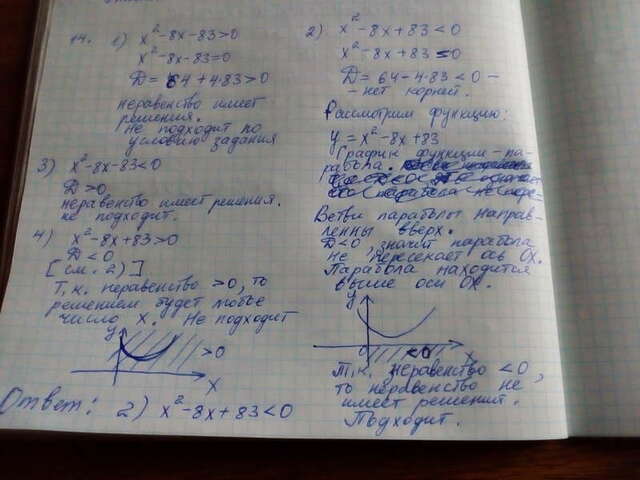 14. 1) x²-8x-83>0
x²-8x-83=0
D=64+4·83>0
неравенство имеет
решения.
Не подходит по
условию задания
2) x²-8x+83<0
x²-8x+83=0
D=64-4·83<0 -
- нет корней.
Рассмотрим функцию:
y=x²-8x+83
График функции - па-
рабола.
Ветви параболы направ-
ленны вверх.
D<0, значит парабола
не пересекает ось OX.
Парабола находится
выше оси OX.
y
0
<0
x
Т.к. неравенство <0,
то неравенство не
имеет решений.
Подходит.
3) x²-8x-83<0
D>0
неравенство имеет решения.
не подходит.
4) x²-8x+83>0
D<0
[см. 2)]
Т.к. неравенство >0, то
решением будет любое
число x. Не подходит
y
>0
x
Ответ: 2) x²-8x+83<0